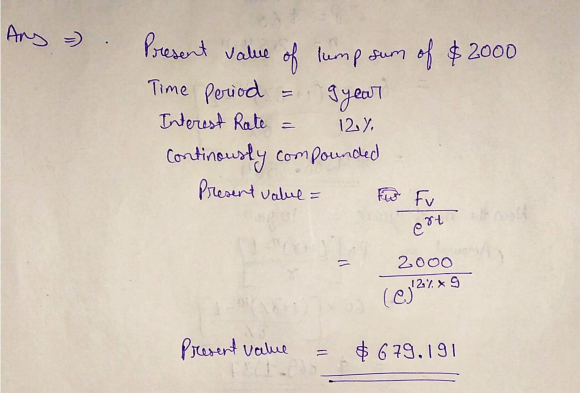 Ans ⇒ . Present value of lump sum of $ 2000
Time Period = 9 year
Interest Rate = 12%
Continously compounded
Present value = Fv / e^rt
= 2000 / (e)^12% x 9
Present value = $ 679.191